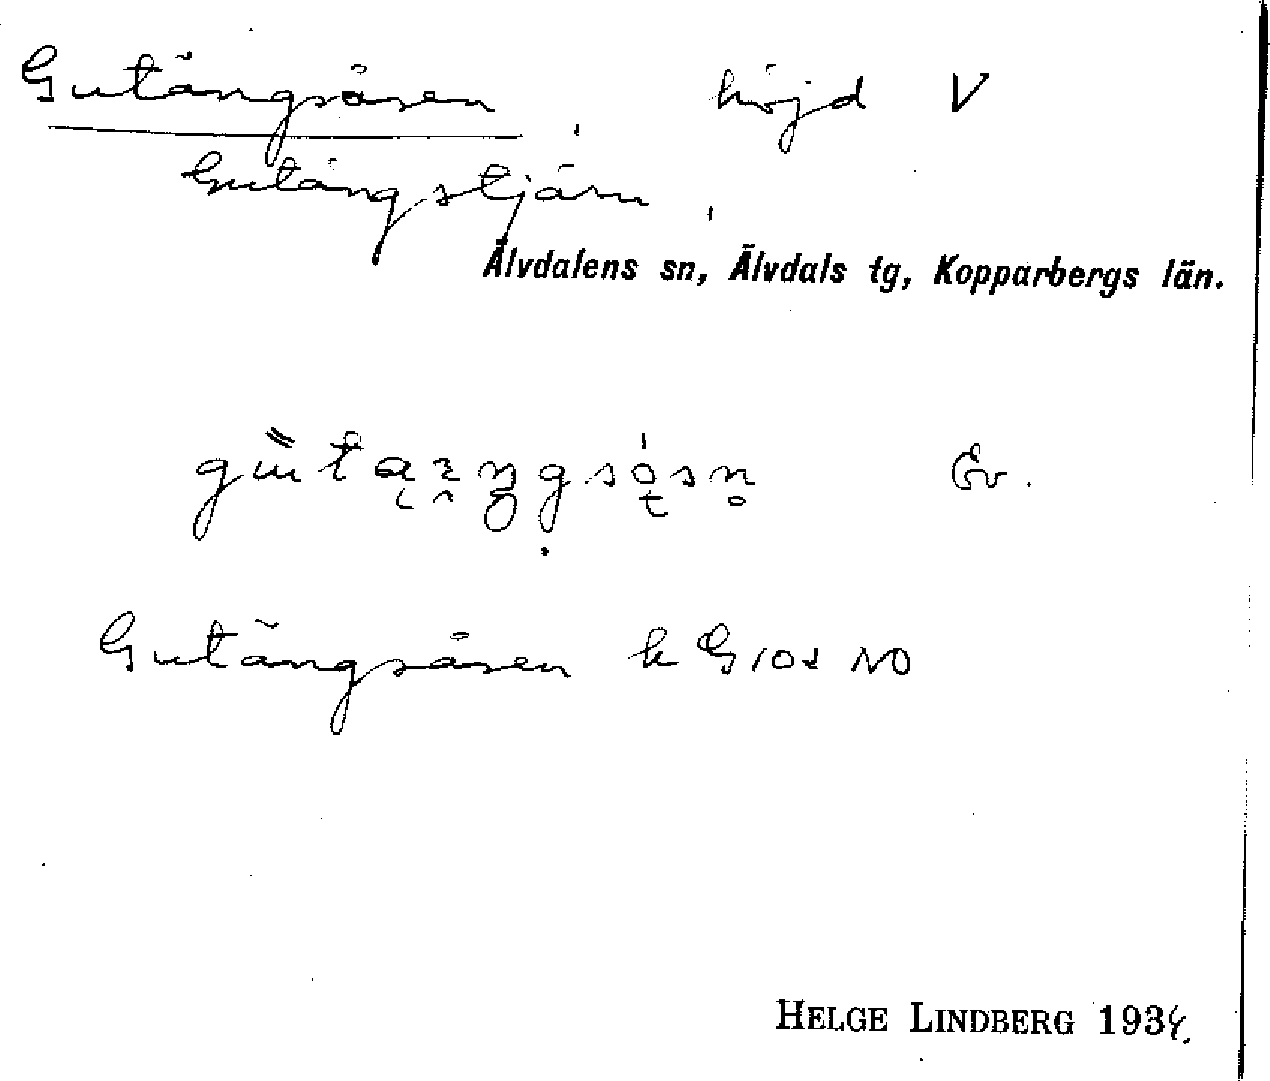 Gutängsåsen höjd V
Gutängstjärn
Älvdalens sn, Älvdals tg, Kopparbergs län.
Ev.
Gutängsåsen h G 10 d NO
HELGE LINDBERG 1934.